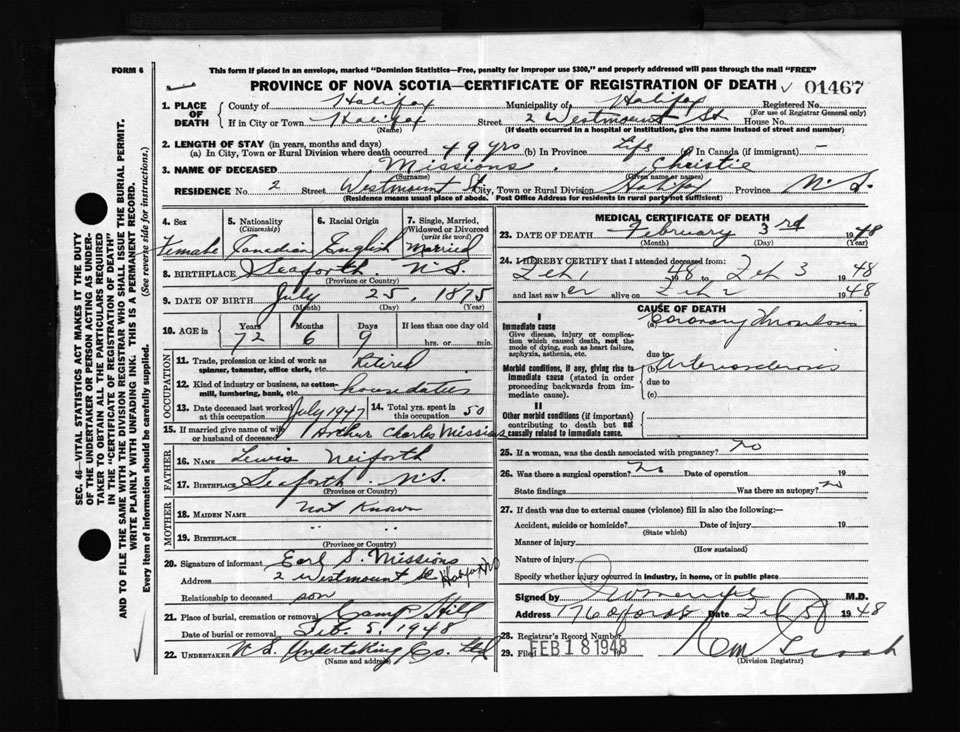 FORM 6
This form if placed in an envelope, marked "Dominion Statistics—Free, penalty for improper use $300," and properly addressed will pass through the mail "FREE"
PROVINCE OF NOVA SCOTIA—CERTIFICATE OF REGISTRATION OF DEATH 01467
1. PLACE OF DEATH
County of Halifax Municipality of Halifax Registered No.
(For use of Registrar General only)
If in City or Town Halifax Street 2 Westmount St House No.
(Name) (If death occurred in a hospital or institution, give the name instead of street and number)
2. LENGTH OF STAY (in years, months and days)
(a) In City, Town or Rural Division where death occurred 49 yrs (b) In Province Life (c) In Canada (if immigrant) —
3. NAME OF DECEASED Missions, Christie
(Surname) (Given name or names)
RESIDENCE No. 2 Street Westmount St City, Town or Rural Division Halifax Province N.S.
(Residence means usual place of abode. Post Office Address for residents in rural party not sufficient)
4. Sex 5. Nationality (Citizenship) 6. Racial Origin 7. Single, Married, Widowed or Divorced (write the word)
Female Canadian English Married
8. BIRTHPLACE Seaforth N.S.
(Province or Country)
9. DATE OF BIRTH July 25, 1875
(Month) (Day) (Year)
10. AGE in Years Months Days If less than one day old
72 6 9 hrs. or min.
OCCUPATION
11. Trade, profession or kind of work as spinner, teamster, office clerk, etc. Retired
12. Kind of industry or business, as cotton-mill, lumbering, bank, etc.
13. Date deceased last worked at this occupation July 1947 14. Total yrs. spent in this occupation 50
15. If married give name of wife or husband of deceased Arthur Charles Missions
FATHER
16. NAME Lewis Neiforth
17. BIRTHPLACE Seaforth N.S.
(Province or Country)
MOTHER
18. MAIDEN NAME Not Known
19. BIRTHPLACE " "
(Province or Country)
20. Signature of informant Earl S. Missions
Address 2 Westmount St Halifax NS
Relationship to deceased son
21. Place of burial, cremation or removal Camp Hill
Date of burial or removal Feb. 5, 1948
22. UNDERTAKER N.S. Undertaking Co. Ltd
(Name and address)
MEDICAL CERTIFICATE OF DEATH
23. DATE OF DEATH February 3rd 1948
(Month) (Day) (Year)
24. I HEREBY CERTIFY that I attended deceased from:
Feb 1 1948 to Feb 3 1948
and last saw her alive on Feb 2 1948
CAUSE OF DEATH
I
Immediate cause (a) Coronary Thrombosis
Give disease, injury or complication which caused death, not the mode of dying, such as heart failure, asphyxia, asthenia, etc.
due to
Morbid conditions, if any, giving rise to immediate cause (stated in order proceeding backwards from immediate cause). (b) Arteriosclerosis
due to
(c)
II
Other morbid conditions (if important) contributing to death but not causally related to immediate cause.
25. If a woman, was the death associated with pregnancy? No
26. Was there a surgical operation? No Date of operation 19
State findings Was there an autopsy? No
27. If death was due to external causes (violence) fill in also the following:—
Accident, suicide or homicide? Date of injury 19
(State which)
Manner of injury
(How sustained)
Nature of injury
Specify whether injury occurred in industry, in home, or in public place
Signed by M.D.
Address Date Feb 1948
28. Registrar's Record Number
29. Filed FEB 18 1948 19
(Division Registrar)
SEC. 46—VITAL STATISTICS ACT MAKES IT THE DUTY
OF THE UNDERTAKER OR PERSON ACTING AS UNDERTAKER
TO OBTAIN ALL THE PARTICULARS REQUIRED
IN THE "CERTIFICATE OF REGISTRATION OF DEATH"
AND TO FILE THE SAME WITH THE DIVISION REGISTRAR WHO SHALL ISSUE THE BURIAL PERMIT.
WRITE PLAINLY WITH UNFADING INK. THIS IS A PERMANENT RECORD.
Every item of information should be carefully supplied. (See reverse side for instructions.)